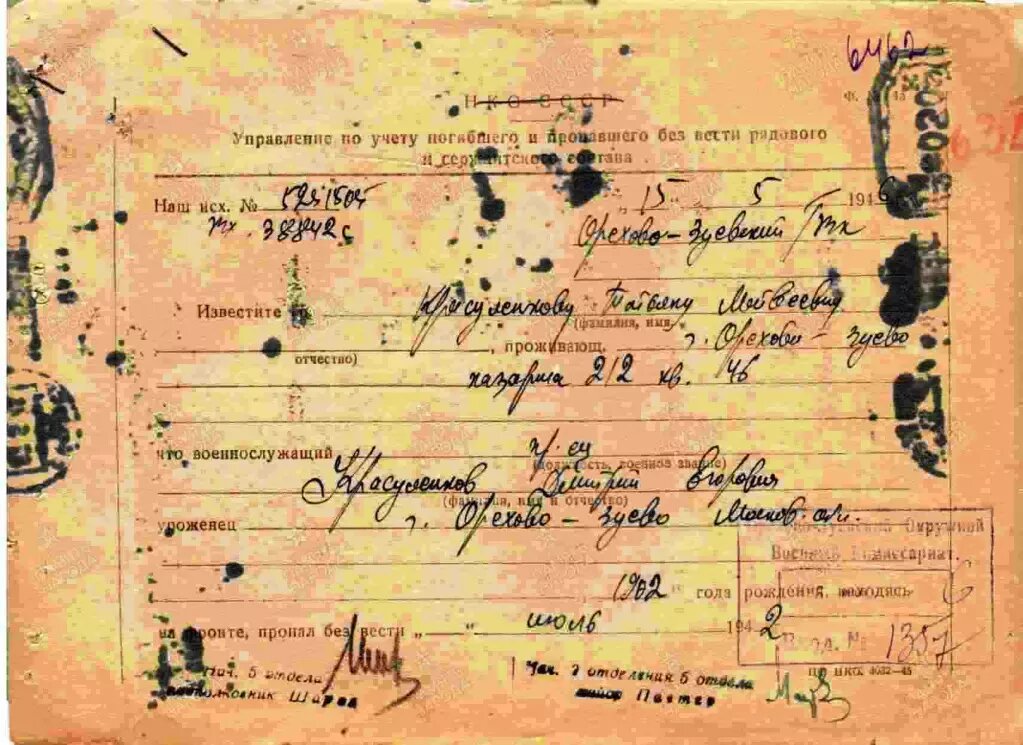 6462
НКО СССР
Ф.
Управление по учету погибшего и пропавшего без вести рядового
и сержантского состава
Наш исх. №
"15" 5 1946
Вх. 38842с
Орехово-Зуевский ГВК
Известите гр. Красуленкову Татьяну Матвеевну
(фамилия, имя,
отчество) , проживающ. г. Орехово-Зуево
казарма 212 кв. 46
что военнослужащий кр-ец
(должность, военное звание)
Красуленков Дмитрий Егорович
(фамилия, имя и отчество)
уроженец г. Орехово-Зуево Москов. обл.
Окружной
Военный Комиссариат.
1902 года рождения, находясь
на фронте, пропал без вести " " июль 1942
Вход. № 1357
ПФ НКО. 4032-45
Нач. 5 отдела
подполковник Шаров
Нач. 2 отделения 5 отдела
майор